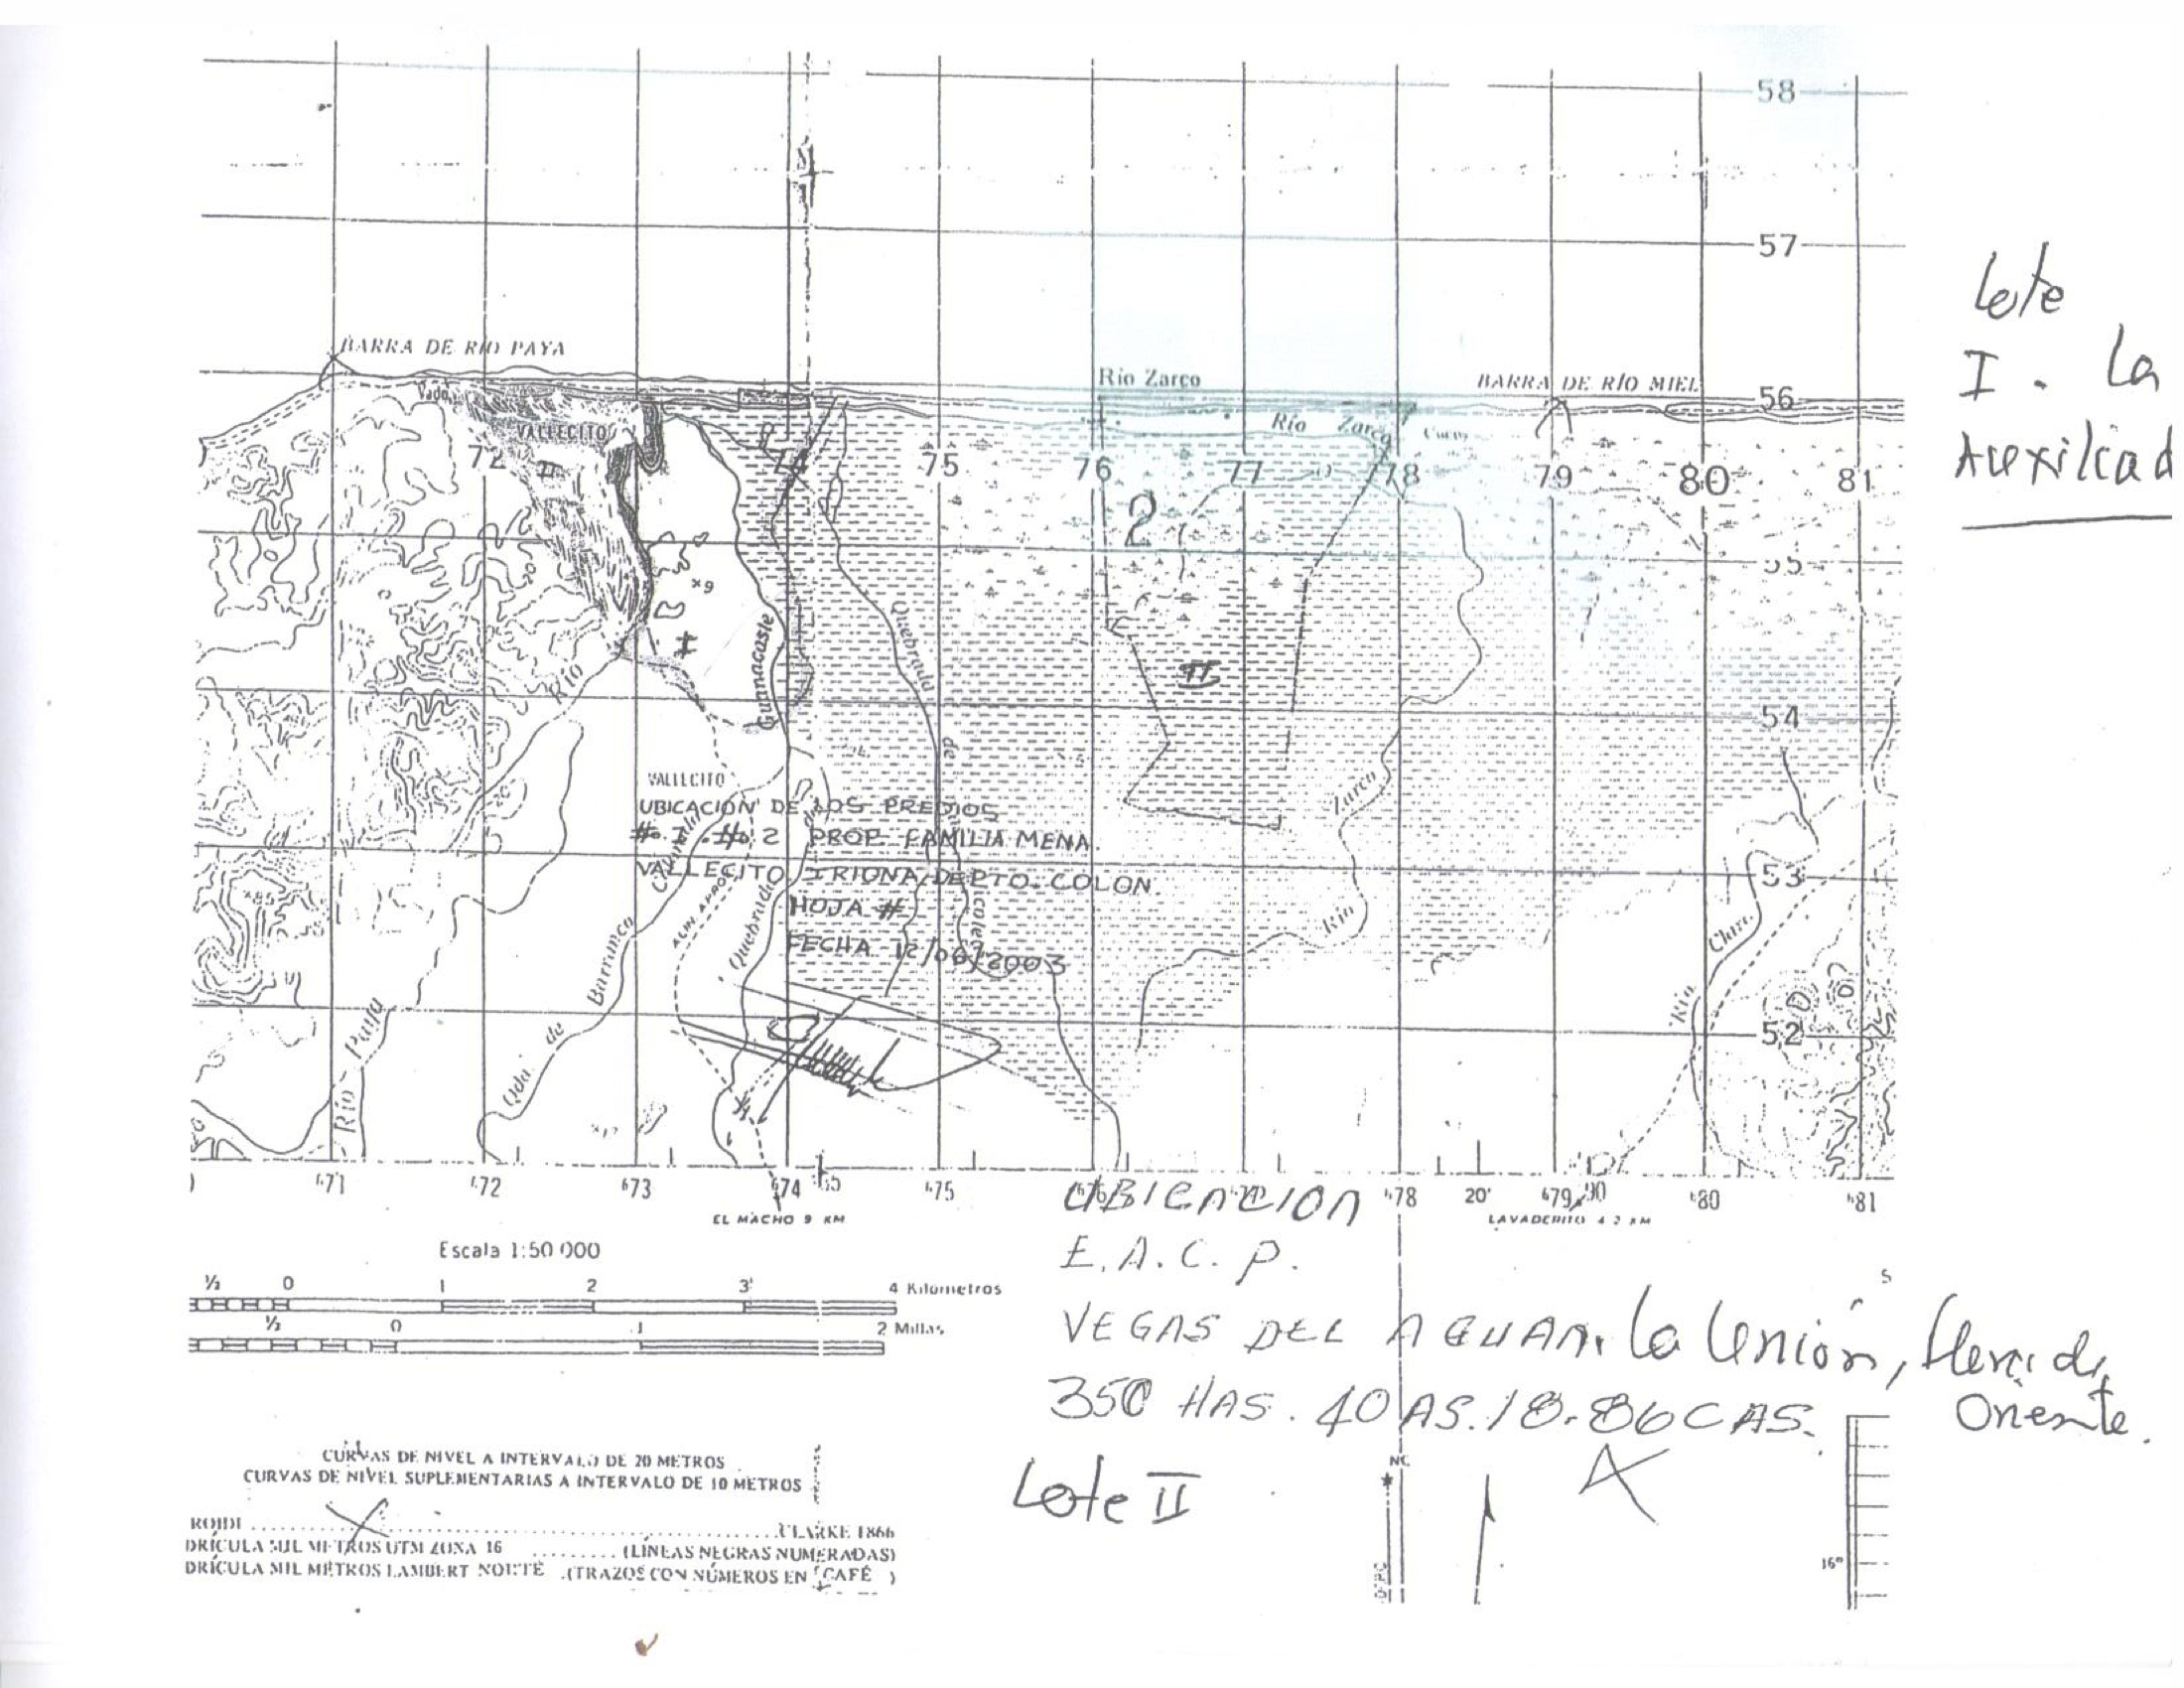 58
57
Lote
I. La
Auxiliad
BARRA DE RIO PAYA
Río Zarco
BARRA DE RÍO MIEL
56
Vado
VALLECITO
Río Zarco
72
74
75
76
77
78
79
80
81
II
2
55
x9
I
Guanacaste
Quebrada de
II
54
Río
VALLECITO
UBICACION DE LOS PREDIOS
#. 1 #. 2 PROP. FAMILIA MENA
VALLECITO, IRIONA, DEPTO. COLON.
HOJA #
FECHA 12/06/2003
Zarco
Río
53
Claro
Río
52
Quebrada
Barranco
Qda. de
Río Paya
671
672
673
674
675
676
678
20'
679
680
681
EL MACHO 9 KM
UBICACION
E.A.C.P.
VEGAS DEL AGUAN. La Unión,
350 HAS. 40 AS. 18.86 CAS.
Oriente.
Lote II
Escala 1:50 000
½ 0 1 2 3 4 Kilómetros
½ 0 1 2 Millas
CURVAS DE NIVEL A INTERVALO DE 20 METROS
CURVAS DE NIVEL SUPLEMENTARIAS A INTERVALO DE 10 METROS
CLARKE 1866
DRÍCULA MIL METROS UTM ZONA 16 (LÍNEAS NEGRAS NUMERADAS)
DRÍCULA MIL METROS LAMBERT NORTE (TRAZOS CON NÚMEROS EN CAFÉ)
NC
16°